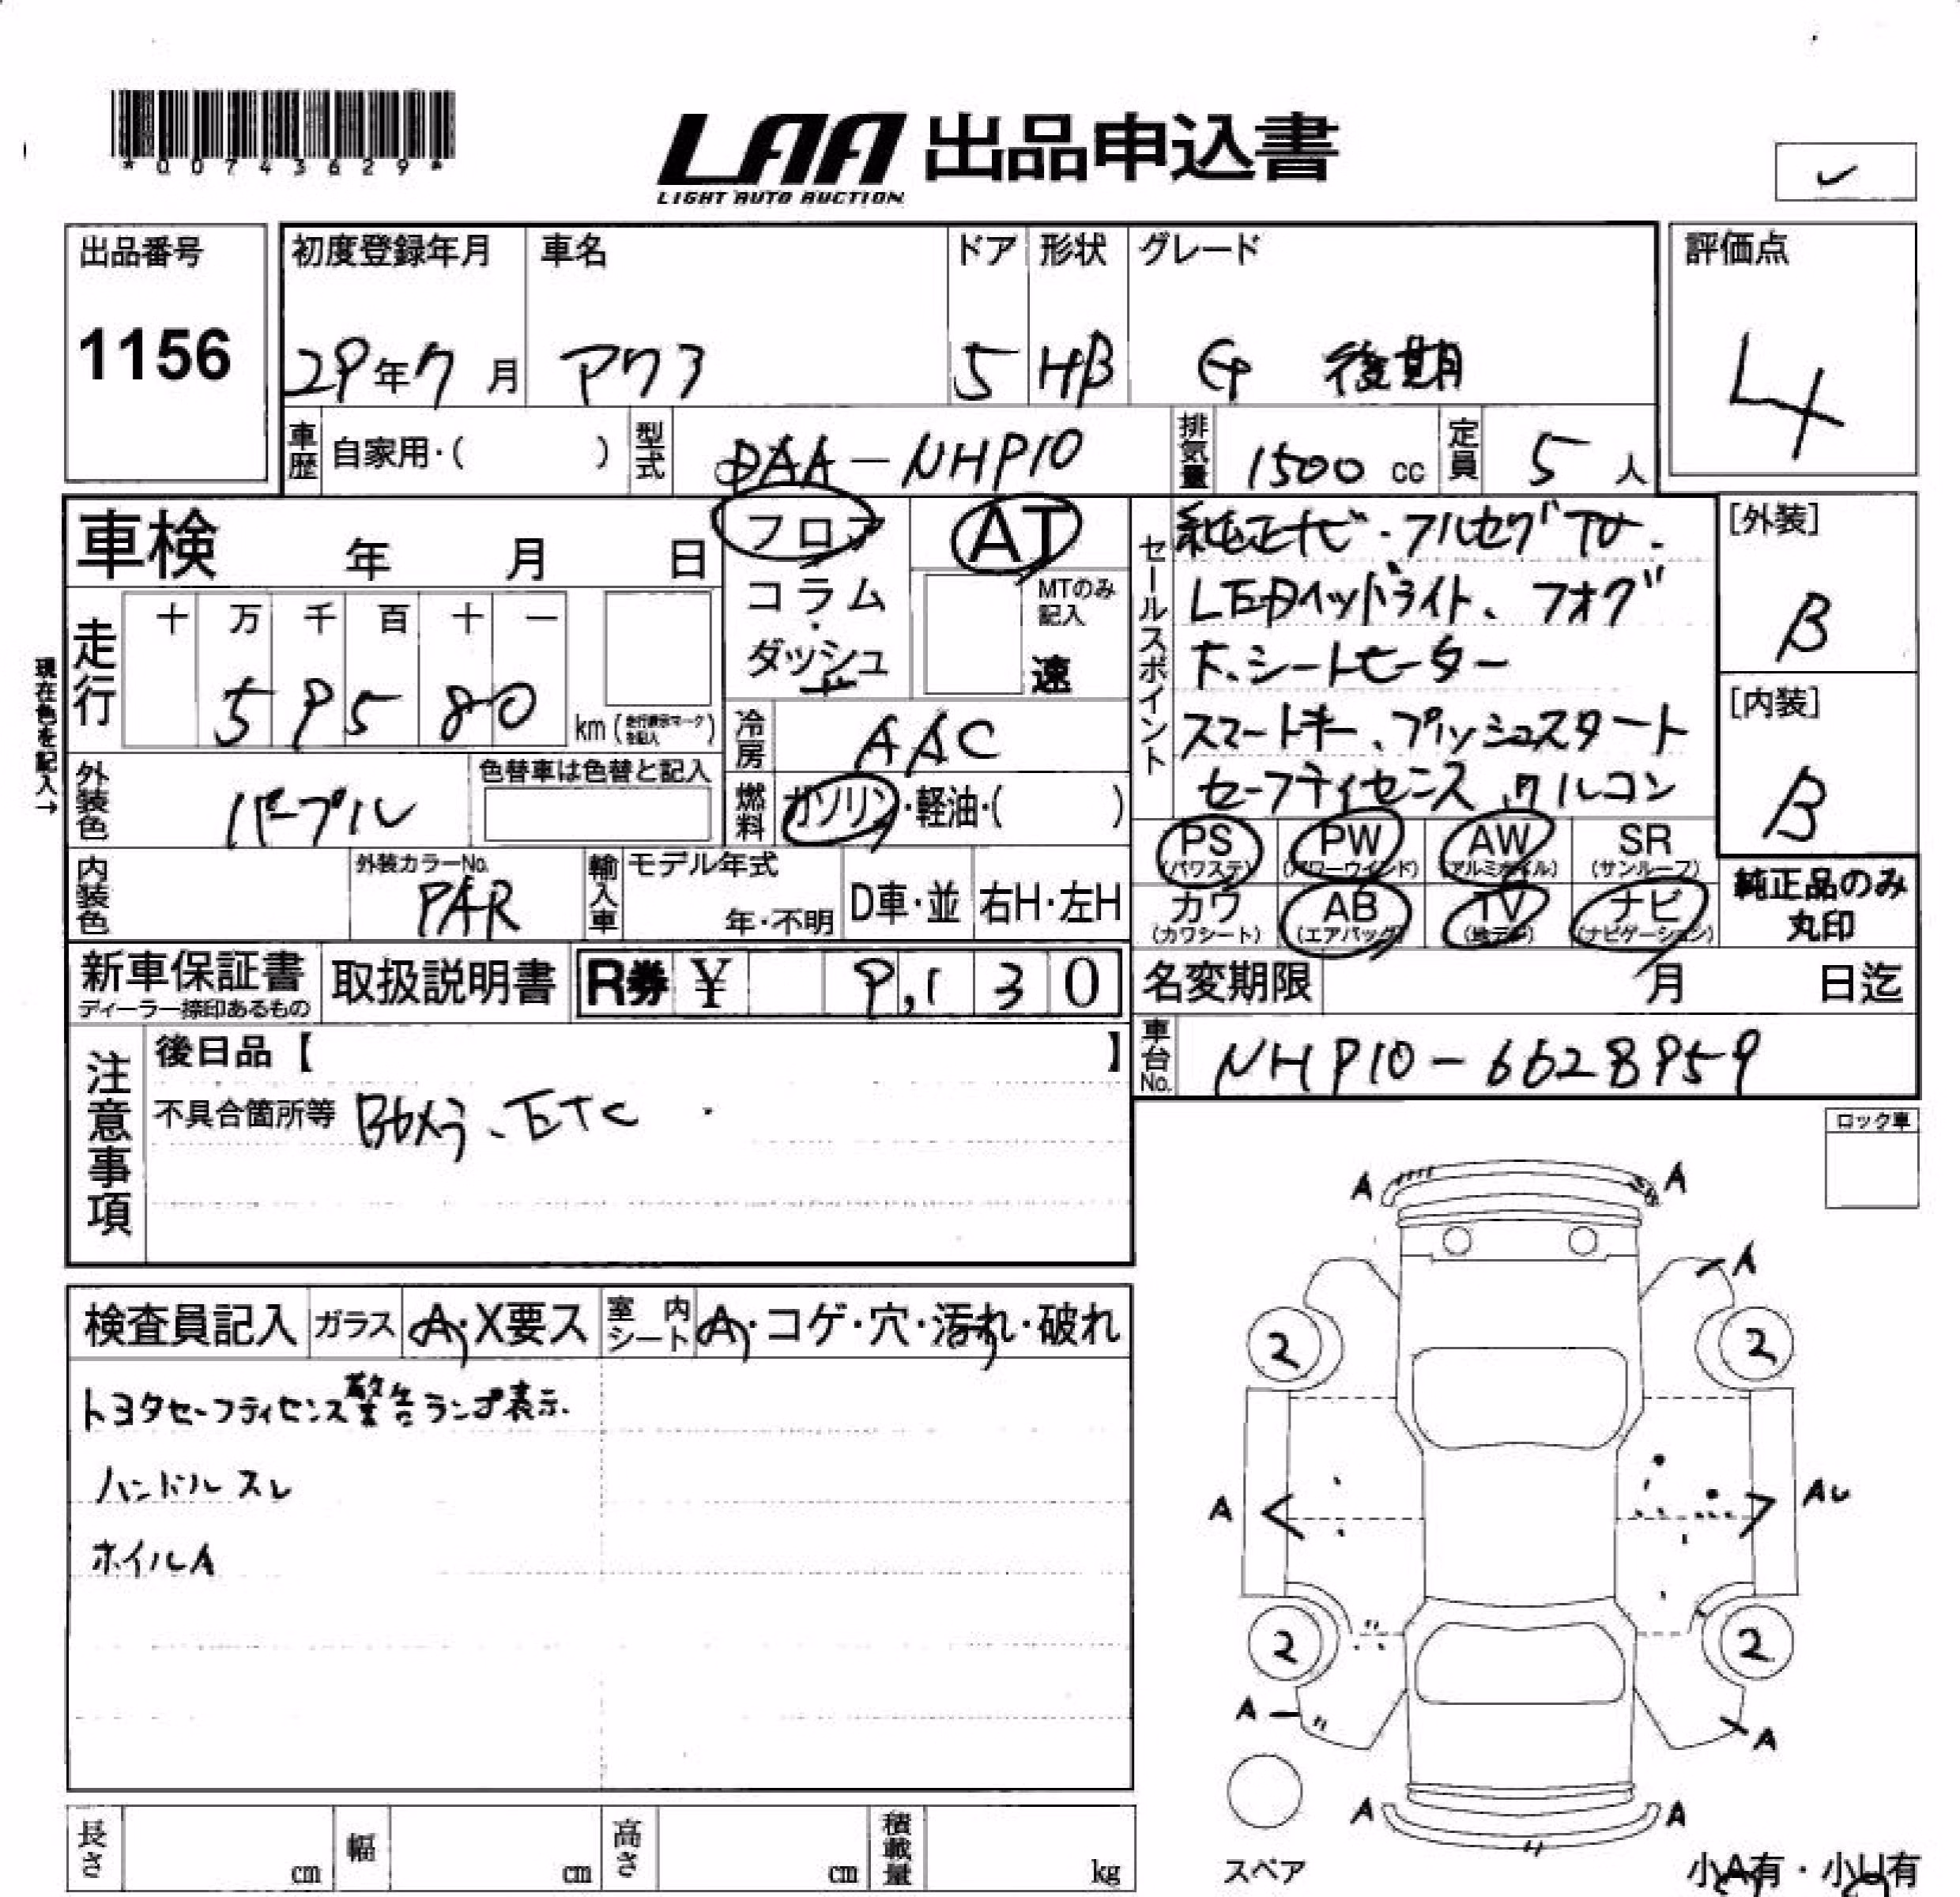 *00743629*
LAA 出品申込書
LIGHT AUTO AUCTION
出品番号
1156
初度登録年月
29年7月
車名
アクア
ドア
5
形状
HB
グレード
G 後期
評価点
4
車歴
自家用・( )
型式
DAA-NHP10
排気量
1500 cc
定員
5人
車検 年 月 日
フロア
コラム
・
ダッシュ
AT
MTのみ
記入
速
セールスポイント
純正ナビ・フルセグTV、
LEDヘッドライト、フォグ
下、シートヒーター
スマートキー、プッシュスタート
セーフティセンス、クルコン
[外装]
B
[内装]
B
現在色を記入→
走行
十 万 千 百 十 一
5 9 5 8 0
km (走行表示マークを記入)
冷房
AAC
外装色
パープル
色替車は色替と記入
燃料
ガソリン・軽油・( )
PS
(パワステ)
PW
(パワーウインド)
AW
(アルミホイル)
SR
(サンルーフ)
カワ
(カワシート)
AB
(エアバッグ)
TV
(地デジ)
ナビ
(ナビゲーション)
純正品のみ
丸印
内装色
外装カラーNo.
PAR
輸入車
モデル年式
年・不明
D車・並
右H・左H
新車保証書
ディーラー捺印あるもの
取扱説明書
R券 ¥ 9,130
名変期限 月 日迄
車台No.
NHP10-6628959
注意事項
後日品【 】
不具合箇所等 Bカメラ、ETC
ロック車
検査員記入
ガラス
A・X要ス
室内シート
A・コゲ・穴・汚れ・破れ
トヨタセーフティセンス警告ランプ表示.
ハンドルスレ
ホイルA
A
A
A
2
2
A
AU
2
2
A
A
A
A
スペア
小A有・小U有
長さ cm
幅 cm
高さ cm
積載量 kg